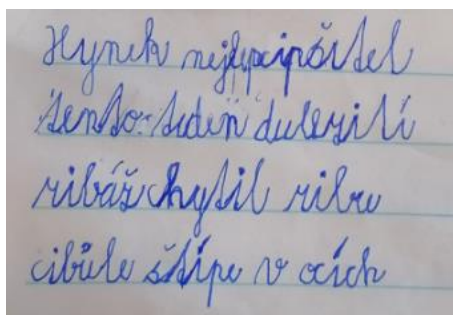 Hynek nejlepcipřítel
tento-tedeň dulezití
ribář chytil ribu
cibůle štípe v ocích